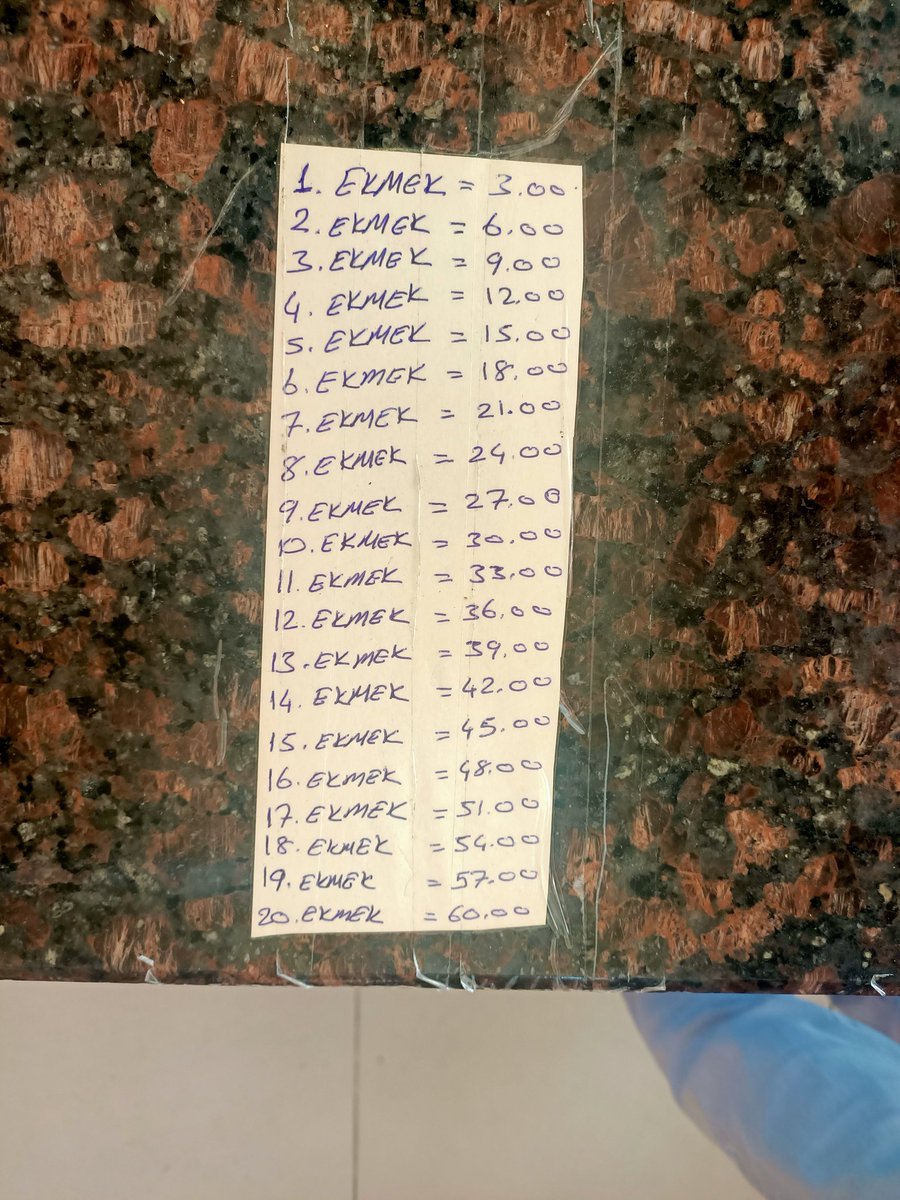 1. EKMEK = 3.00
2. EKMEK = 6.00
3. EKMEK = 9.00
4. EKMEK = 12.00
5. EKMEK = 15.00
6. EKMEK = 18.00
7. EKMEK = 21.00
8. EKMEK = 24.00
9. EKMEK = 27.00
10. EKMEK = 30.00
11. EKMEK = 33.00
12. EKMEK = 36.00
13. EKMEK = 39.00
14. EKMEK = 42.00
15. EKMEK = 45.00
16. EKMEK = 48.00
17. EKMEK = 51.00
18. EKMEK = 54.00
19. EKMEK = 57.00
20. EKMEK = 60.00